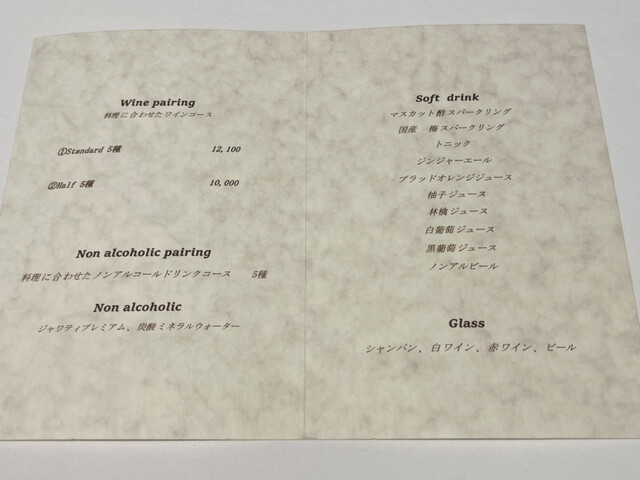 Wine pairing
料理に合わせたワインコース
①Standard 5種 12,100
②Half 5種 10,000
Non alcoholic pairing
料理に合わせたノンアルコールドリンクコース 5種
Non alcoholic
ジャワティプレミアム、炭酸ミネラルウォーター
Soft drink
マスカット酢スパークリング
国産 梅スパークリング
トニック
ジンジャーエール
ブラッドオレンジジュース
柚子ジュース
林檎ジュース
白葡萄ジュース
黒葡萄ジュース
ノンアルビール
Glass
シャンパン、白ワイン、赤ワイン、ビール